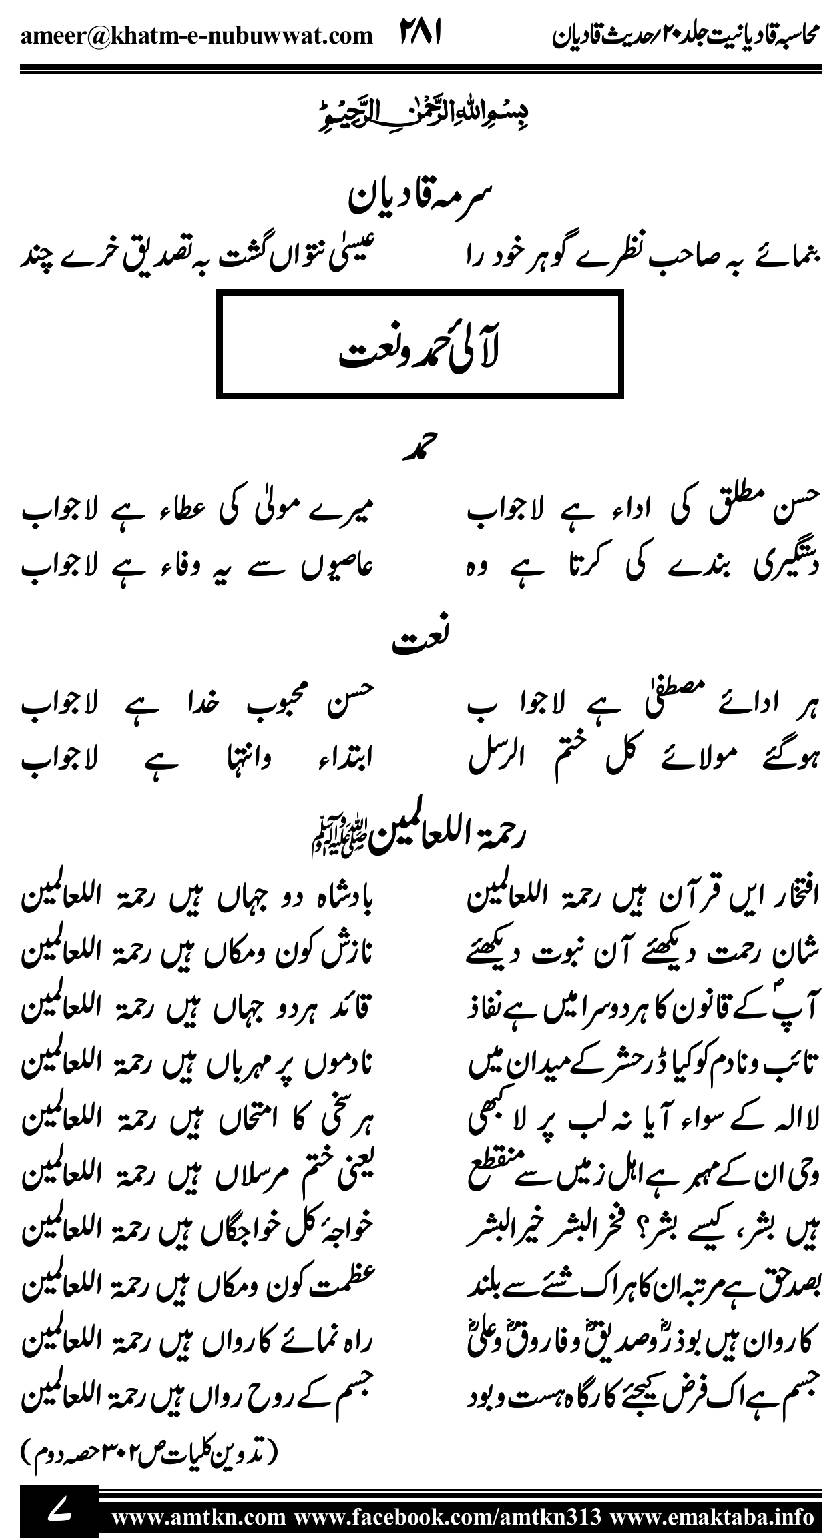 محاسبہ قادیانیت جلد ۲۰/حدیث قادیان ۲۸۱ ameer@khatm-e-nubuwwat.com
بِسْمِ اللّٰهِ الرَّحْمٰنِ الرَّحِیْمِ
سرمہ قادیان
بنمائے بہ صاحب نظرے گوہر خود را عیسیٰ نتواں گشت بہ تصدیق خرے چند
لآلیٔ حمد و نعت
حمد
حسن مطلق کی اداء ہے لاجواب میرے مولیٰ کی عطاء ہے لاجواب
دستگیری بندے کی کرتا ہے وہ عاصیوں سے یہ وفاء ہے لاجواب
نعت
ہر ادائے مصطفیٰ ہے لاجوا ب حسن محبوب خدا ہے لاجواب
ہوگئے مولائے کل ختم الرسل ابتداء وانتہا ہے لاجواب
رحمۃ اللعالمین ﷺ
افتخار ایں قرآن ہیں رحمۃ اللعالمین بادشاہ دو جہاں ہیں رحمۃ اللعالمین
شان رحمت دیکھئے آن نبوت دیکھئے نازش کون ومکاں ہیں رحمۃ اللعالمین
آپؐ کے قانون کا ہر دوسرا میں ہے نفاذ قائد ہردو جہاں ہیں رحمۃ اللعالمین
تائب ونادم کو کیا ڈر حشر کے میدان میں نادموں پر مہرباں ہیں رحمۃ اللعالمین
لاالہ کے سواء آیا نہ لب پر لا کبھی ہر سخی کا امتحاں ہیں رحمۃ اللعالمین
وحی ان کے مہجر ہے اہل زمیں سے منقطع یعنی ختم مرسلاں ہیں رحمۃ اللعالمین
ہیں بشر، کیسے بشر؟ فخر البشر خیر البشر خواجۂ کل خواجگاں ہیں رحمۃ اللعالمین
بصد حق ہے مرتبہ ان کا ہر اک شئے سے بلند عظمت کون ومکاں ہیں رحمۃ اللعالمین
کاروان ہیں بوذرؓ وصدیقؓ وفاروقؓ وعلیؓ راہ نمائے کارواں ہیں رحمۃ اللعالمین
جسم ہے اک فرض کیجئے کارگاہ ہست وبود جسم کے روح رواں ہیں رحمۃ اللعالمین
(تدوین کلیات ص ۳۰۲ حصہ دوم)
7 www.amtkn.com www.facebook.com/amtkn313 www.emaktaba.info